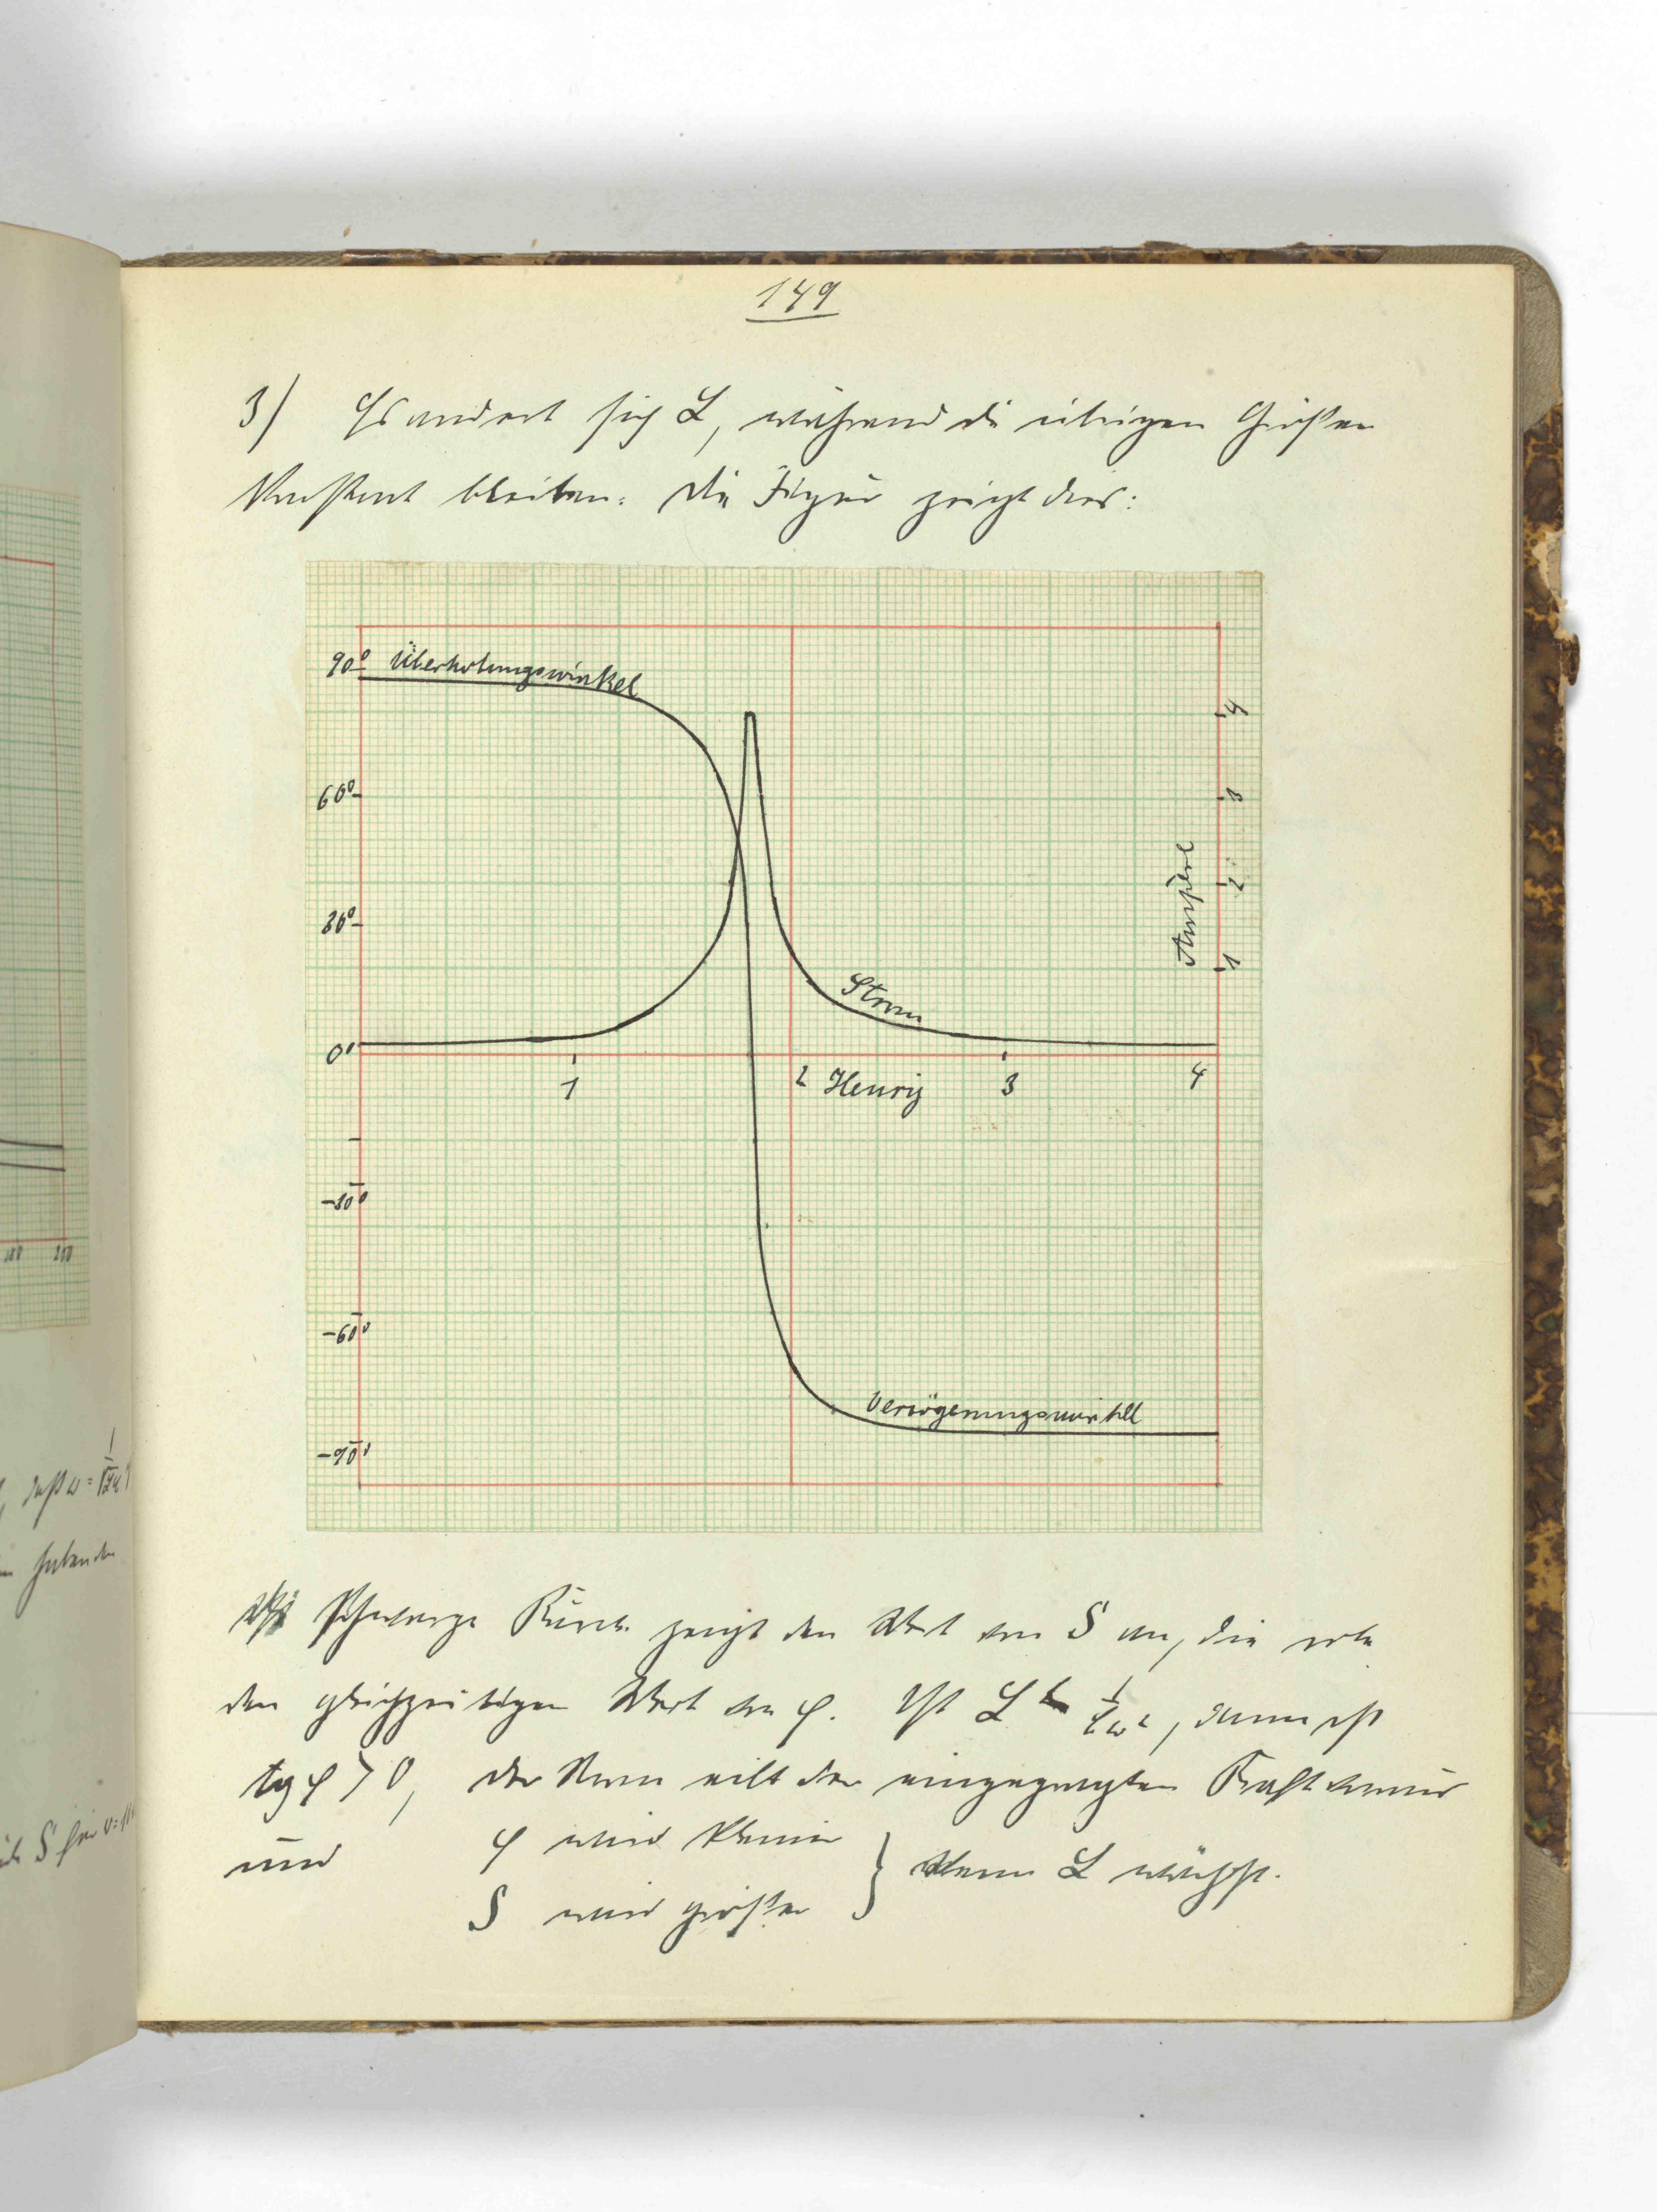 149
3) Es ändert sich L, während die übrigen Größen
konstant bleiben. Die Figur zeigt dies:
90° Überholungswinkel
4
60°
3
Ampère
2
30°
1
Strom
0°
1
2 Henry
3
4
-30°
-60°
Verzögerungswinkel
-90°
100 200
, daß ω =
S für
Die schwarze Kurve zeigt den Wert von S an, die rote
den gleichzeitigen Wert von φ. Ist L < 1/Cω², dann ist
tg φ > 0, der Strom eilt der eingeprägten Kraft voraus
und φ wird kleiner
S wird größer } wenn L wächst.